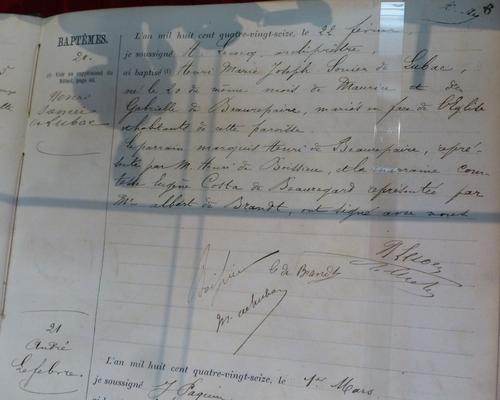 BAPTÊMES.
20.
Henri
Sonier
de Lubac
L'an mil huit cent quatre-vingt-seize, le 22 février,
je soussigné archiprêtre,
ai baptisé Henri Marie Joseph Sonier de Lubac,
né le 20 du même mois de Maurice et de
Gabrielle de Beaurepaire, mariés en face de l'Eglise
& habitants de cette paroisse
Le parrain marquis Henri de Beaurepaire, repré-
senté par M. Henri de Boissieu, et la marraine com-
tesse Eugène Costa de Beauregard représentée par
Me albert de Brandt, ont signé avec nous
Boissieu
G de Brandt
M. de Lubac
21
André
Lefebvre
L'an mil huit cent quatre-vingt-seize, le 1er Mars
je soussigné J Paquin